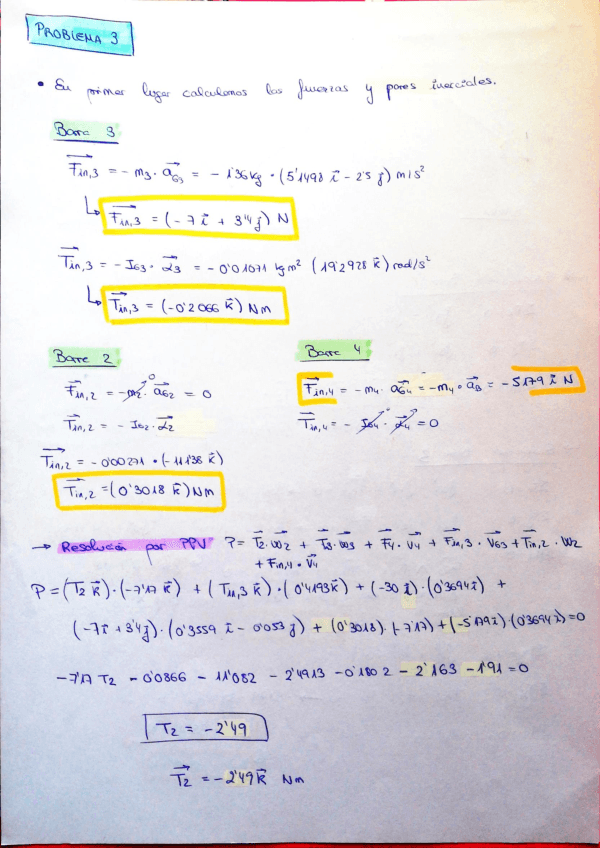 PROBLEMA 3
• En primer lugar calculamos las fuerzas y pares inerciales.
Barra 3
Fin,3 = - m3 · aG3 = - 1'36 kg · (5'1498 i - 2'5 j) m/s²
Fin,3 = (-7 i + 3'4 j) N
Tin,3 = - IG3 · α3 = - 0'01071 kg m² (19'2928 k) rad/s²
Tin,3 = (-0'2066 k) Nm
Barra 2
Fin,2 = - m2 · aG2 = 0
Tin,2 = - IG2 · α2
Tin,2 = - 0'00271 · (- 111'38 k)
Tin,2 = (0'3018 k) Nm
Barra 4
Fin,4 = - m4 · aG4 = - m4 · aB = - 5'179 i N
Tin,4 = - IG4 · α4 = 0
→ Resolución por PPV P = T2·ω2 + T3·ω3 + F4·V4 + Fin,3·VG3 + Tin,2·ω2
+ Fin,4·V4
P = (T2 k)·(-7'17 k) + (Tin,3 k)·(0'4193 k) + (-30 i)·(0'3694 i) +
(-7i + 3'4j)·(0'3559 i - 0'053 j) + (0'3018)·(-7'17) + (-5'179 i)·(0'3694 i) = 0
-7'17 T2 - 0'0866 - 11'082 - 2'4913 - 0'1802 - 2'163 - 1'91 = 0
T2 = -2'49
T2 = -2'49 k Nm